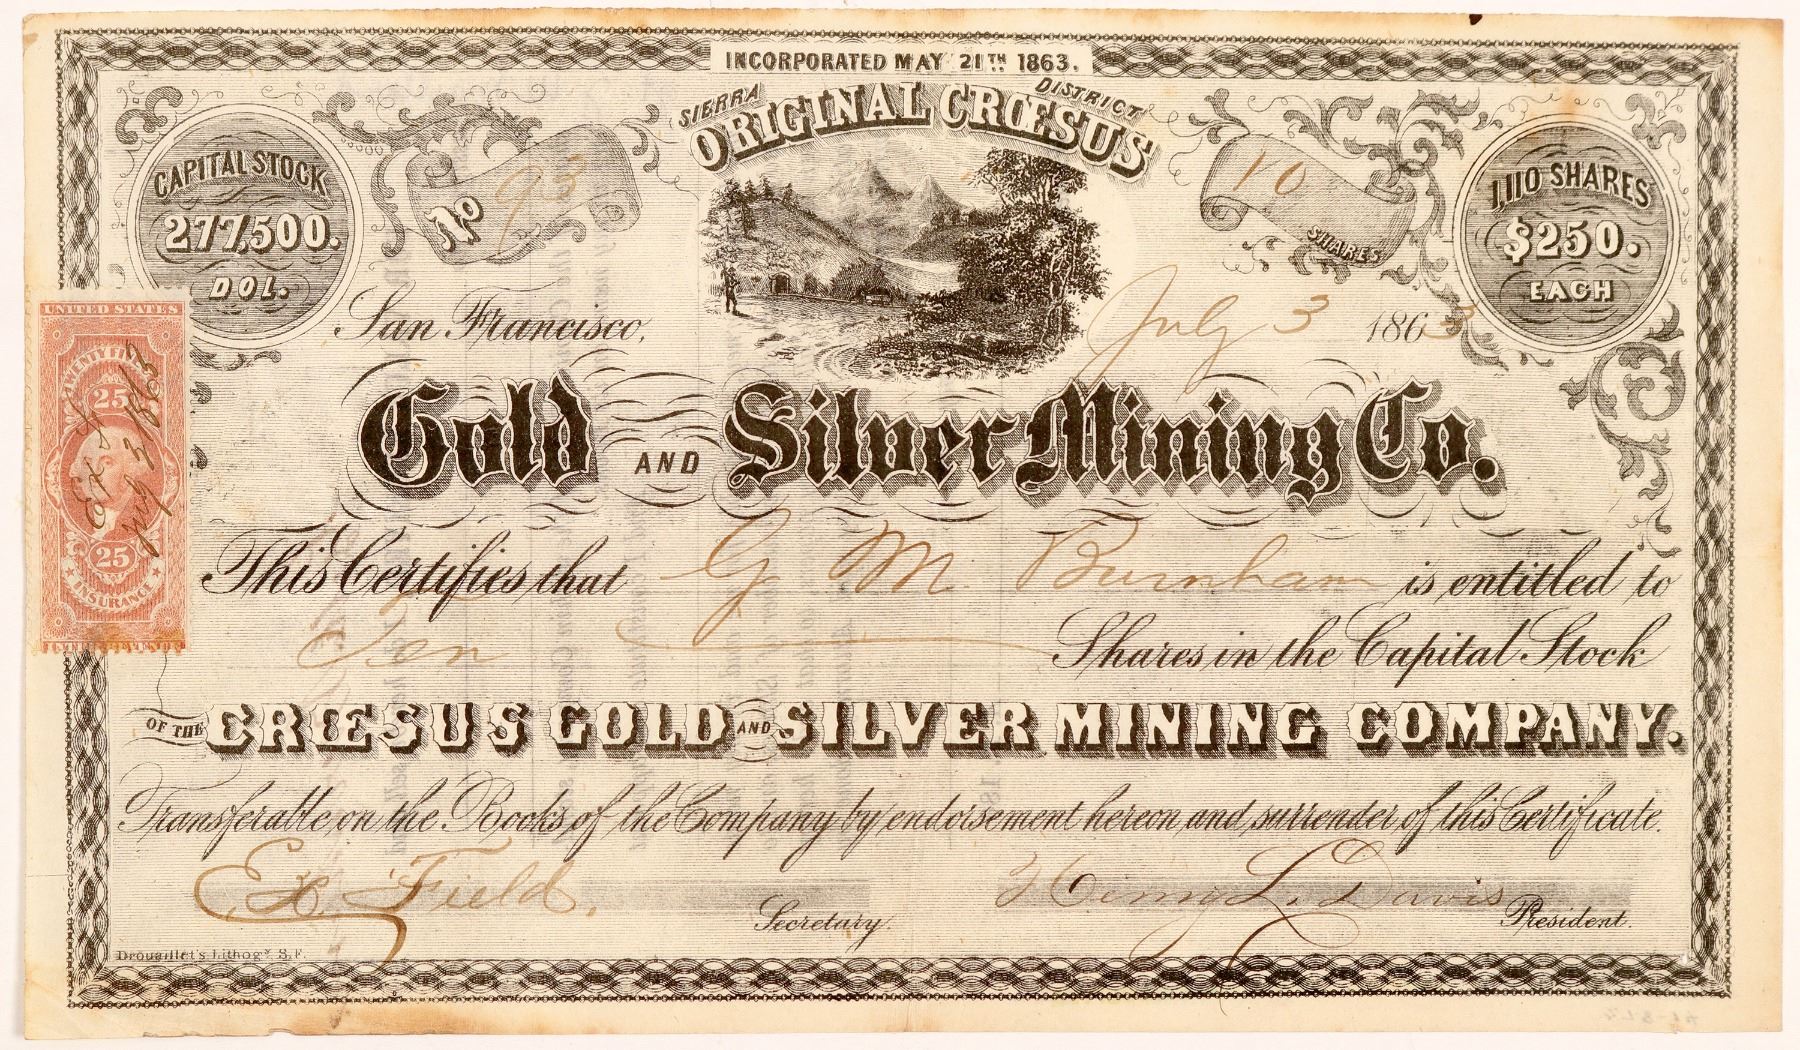 INCORPORATED MAY 21TH 1863.
SIERRA DISTRICT
ORIGINAL CRŒSUS
CAPITAL STOCK
277,500.
DOL.
No 93
10
SHARES
1,110 SHARES
$250.
EACH
San Francisco, July 3 1863
UNITED STATES
TWENTY FIVE
25
Ex F
July 3/863
25
INSURANCE
INTER. REVENUE
Gold AND Silver Mining Co.
This Certifies that G M Burnham is entitled to
Ten Shares in the Capital Stock
OF THE CRŒSUS GOLD AND SILVER MINING COMPANY.
Transferable on the Books of the Company by endorsement hereon and surrender of this Certificate.
Ex Field. Secretary.
Henry L. Davis President.
Drouaillet's Lithogy S.F.